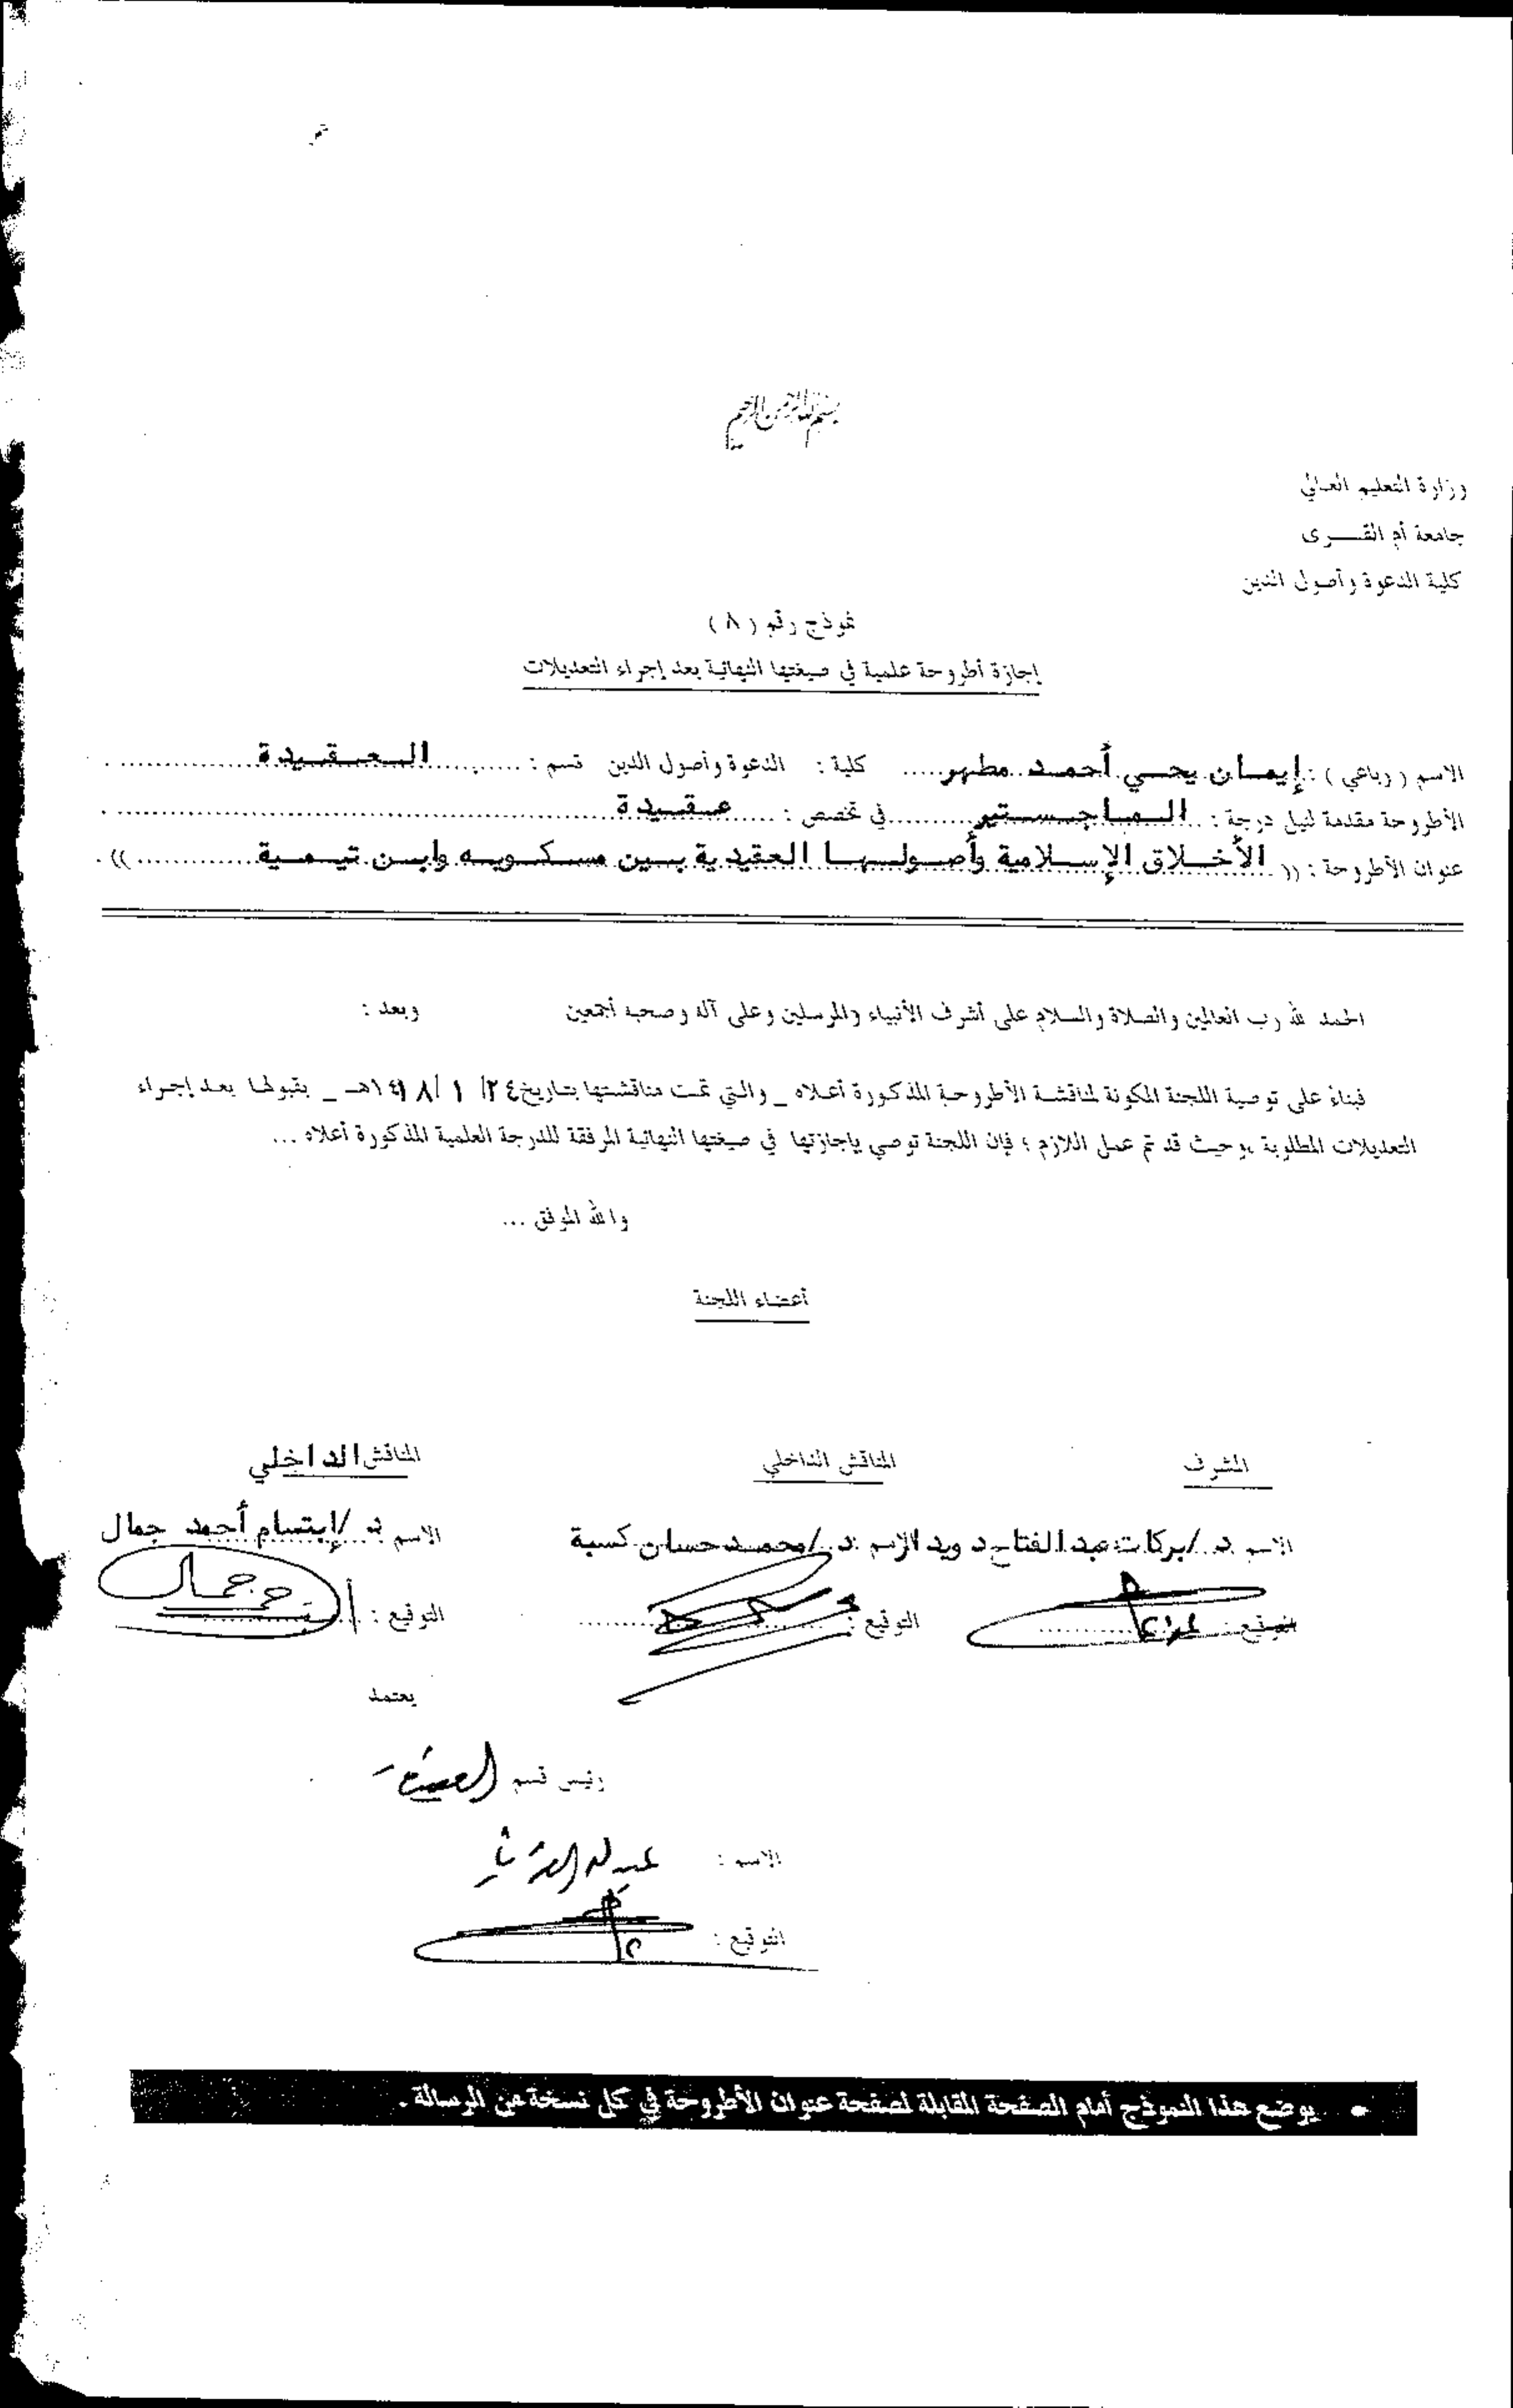 بسم الله الرحمن الرحيم
وزارة التعليم العالي
جامعة أم القــــرى
كلية الدعوة وأصول الدين
نموذج رقم ( ٨ )
إجازة أطروحة علمية في صيغتها النهائية بعد إجراء التعديلات
الاسم ( رباعي ) : إيمـان يحـي أحمـد مطهر ..... كلية : الدعوة وأصول الدين قسم : ........ الـعـقـيدة ..................
الأطروحة مقدمة لنيل درجة : ... الـمـاجـسـتير .......... في تخصص : ....... عـقـيدة ..................
عنوان الأطروحة : (( .. الأخـلاق الإسـلامية وأصـولـهـا العقيدية بـيـن مـسـكـويـه وابـن تـيـمـيـة ............. )) .
الحمد لله رب العالمين والصلاة والسلام على أشرف الأنبياء والمرسلين وعلى آله وصحبه أجمعين وبعد :
فبناءً على توصية اللجنة المكونة لمناقشة الأطروحة المذكورة أعلاه _ والتي تمت مناقشتها بتاريخ ٢٤/ ١ /١٤١٨هـ _ بقبولها بعد إجراء
التعديلات المطلوبة ،وحيث قد تم عمل اللازم ؛ فإن اللجنة توصي بإجازتها في صيغتها النهائية المرفقة للدرجة العلمية المذكورة أعلاه ...
والله الموفق ...
أعضاء اللجنة
المشرف المناقش الداخلي المناقش الداخلي
الاسم : د ./بركات عبد الفتاح دويدار الاسم : د./محمد حسان كسبة الاسم : د ./إبتسام أحمد جمال
التوقيع : ............ التوقيع : ............ التوقيع : ............
يعتمد
رئيس قسم العقيدة
الاسم :
التوقيع :
• يوضع هذا النموذج أمام الصفحة المقابلة لصفحة عنوان الأطروحة في كل نسخة من الرسالة .